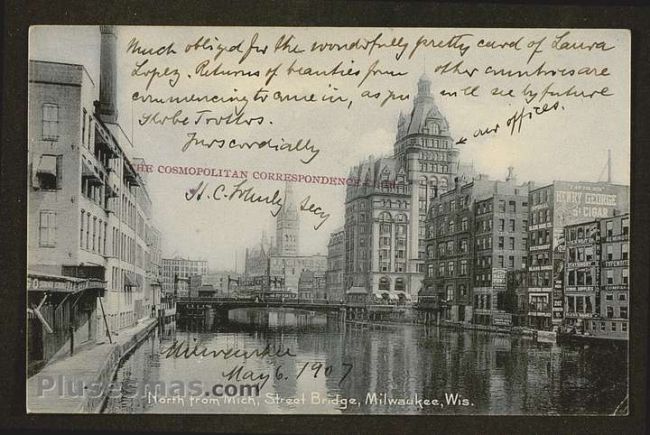 Much obliged for the wonderfully pretty card of Laura
Lopez. Returns of beauties from other countries are
commencing to come in, as you will see by future
Globe Trotters.
our offices.
Yours cordially
THE COSMOPOLITAN CORRESPONDENCE
Secy
HENRY GEORGE
5¢ CIGAR
Milwaukee
May 6. 1907
Plusesmas.com
North from Mich, Street Bridge, Milwaukee, Wis.